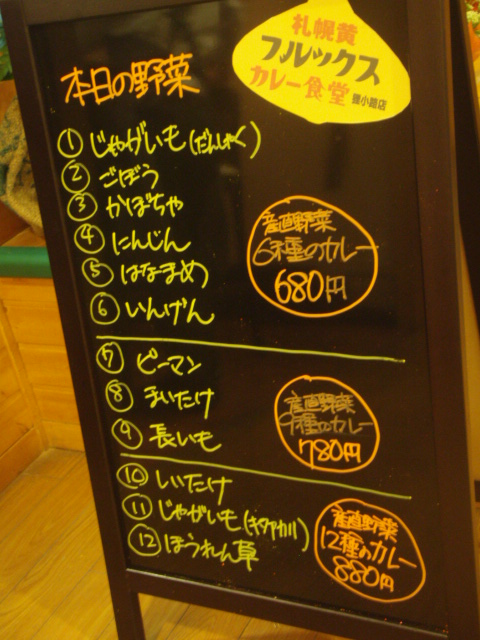 札幌黄
フルックス
カレー食堂
狸小路店
本日の野菜
① じゃがいも(だんしゃく)
② ごぼう
③ かぼちゃ
④ にんじん
⑤ はなまめ
⑥ いんげん
産直野菜
6種のカレー
680円
⑦ ピーマン
⑧ まいたけ
⑨ 長いも
産直野菜
9種のカレー
780円
⑩ しいたけ
⑪ じゃがいも(キタアカリ)
⑫ ほうれん草
産直野菜
12種のカレー
880円